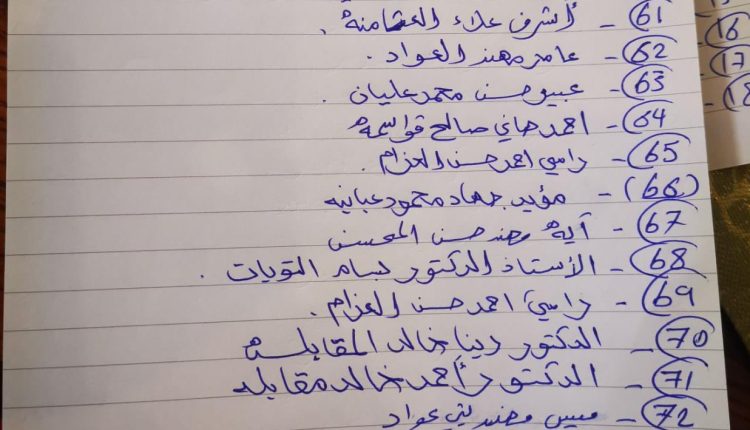 61 - أشرف علاء العثامنة.
62 - عامر مهند العواد.
63 - عبير حسن محمد عليان.
64 - احمد هاني صالح قواسمه
65 - رامي احمد حسن العزام.
(66) - مؤيد جهاد محمود عبابنه
67 - آية مهند حسن المحسن
68 - الأستاذ الدكتور بسام التويات.
69 - رامي احمد حسن العزام.
70 - الدكتور دينا خالد المقابله
71 - الدكتور أحمد خالد مقابله
72 - ميس مهند عواد
16
17
18